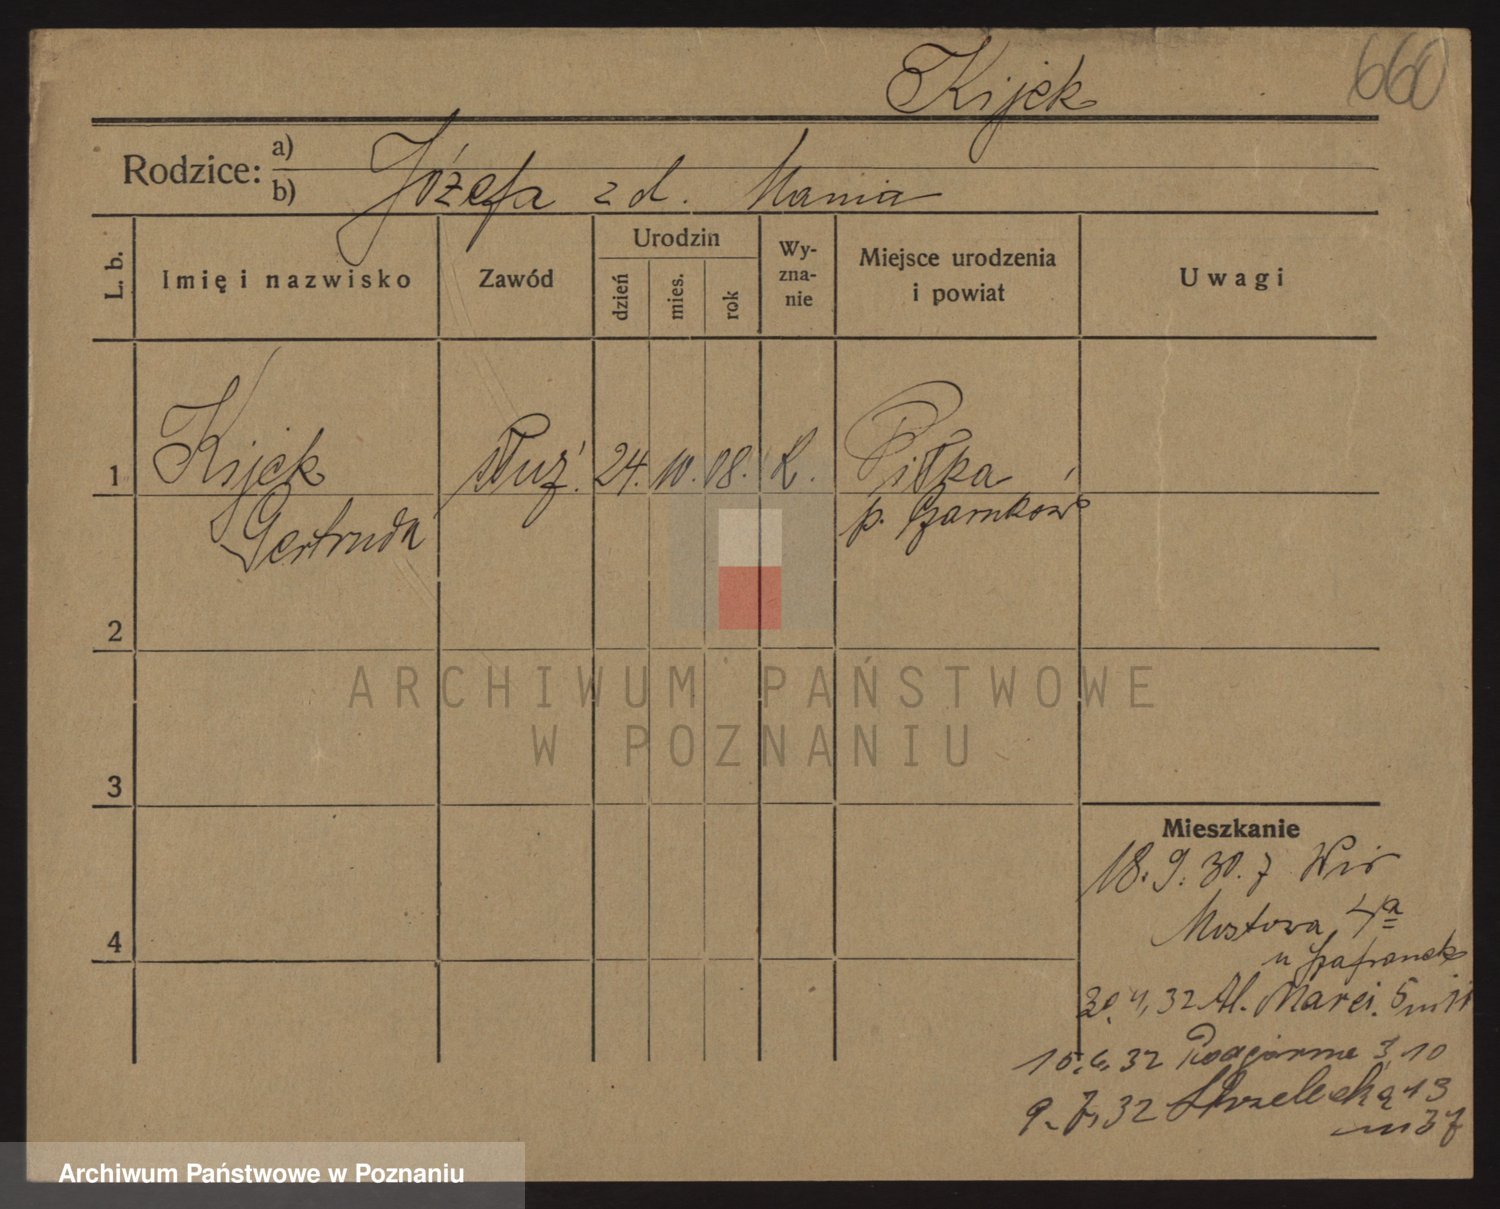 Kijek
660
Rodzice: a)
b) Józefa z d. Mania
L. b.
Imię i nazwisko
Zawód
Urodzin
dzień
mies.
rok
Wy-
zna-
nie
Miejsce urodzenia
i powiat
Uwagi
1 Kijek służ. 24. 10. 08. k. Piłka
Gertruda p. Czarnków
2
3
4
Mieszkanie
18. 9. 30. z
Mostowa 4a
u Szafranek
30. 4. 32 Al. Marci. 5 m 11
15. 6. 32 Podgórna 3, 10
9. 7. 32 Strzelecka 13
m 37
ARCHIWUM PAŃSTWOWE
W POZNANIU
Archiwum Państwowe w Poznaniu